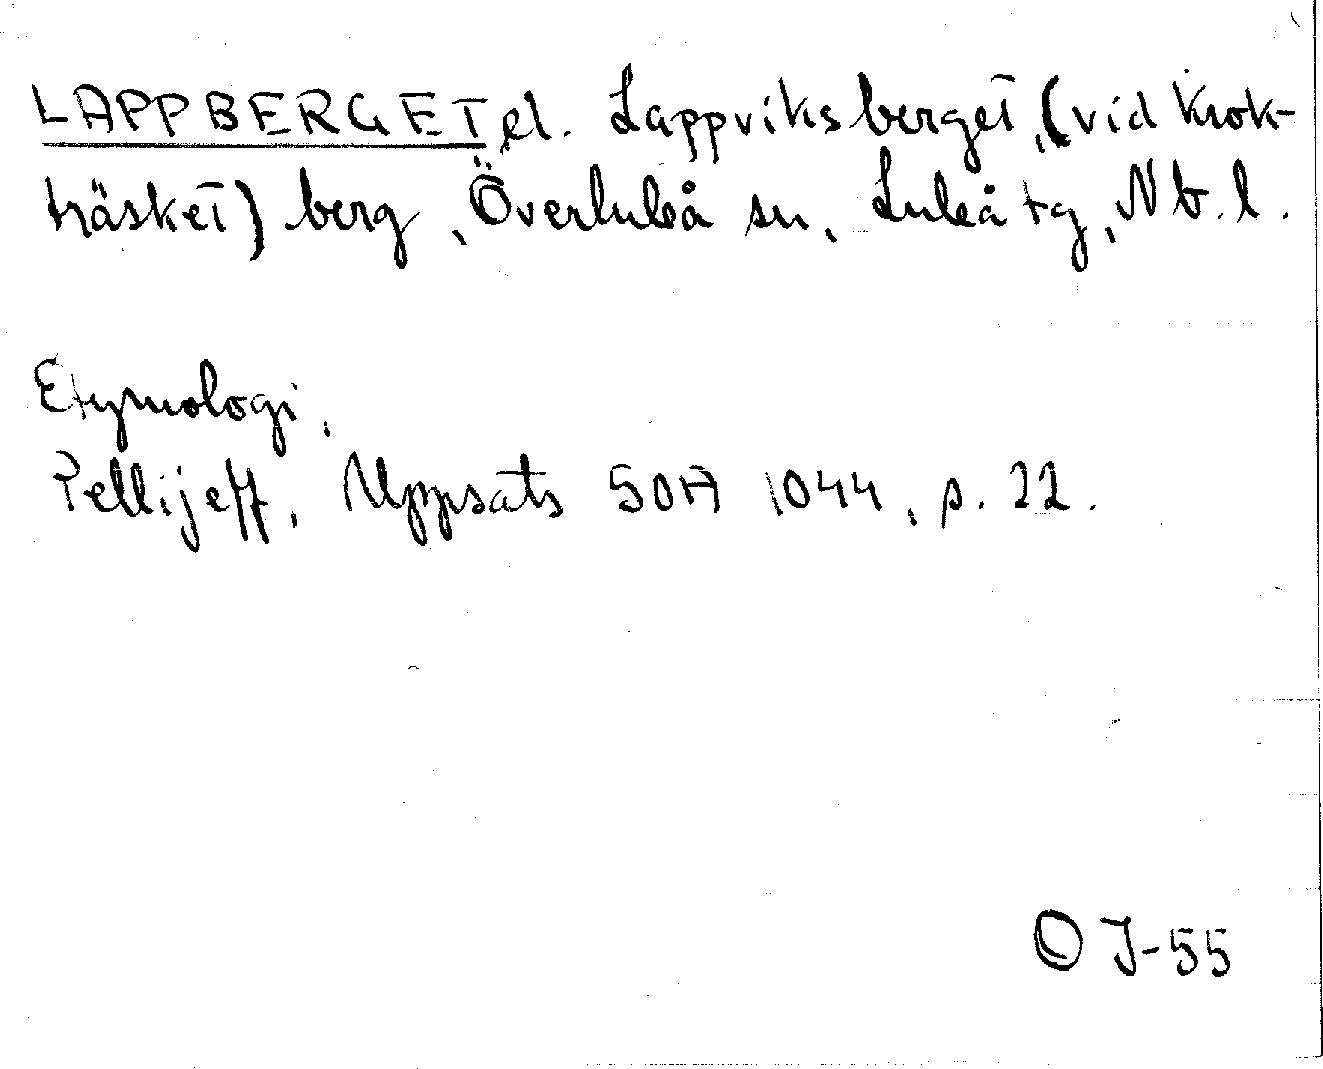 LAPPBERGET el. Lappviksberget, (vid Krok-
träsket) berg, Överluleå sn, Luleå tg, Nb. l.
Etymologi.
Pellijeff, Uppsats SOA 1044, p. 22.
OJ-55